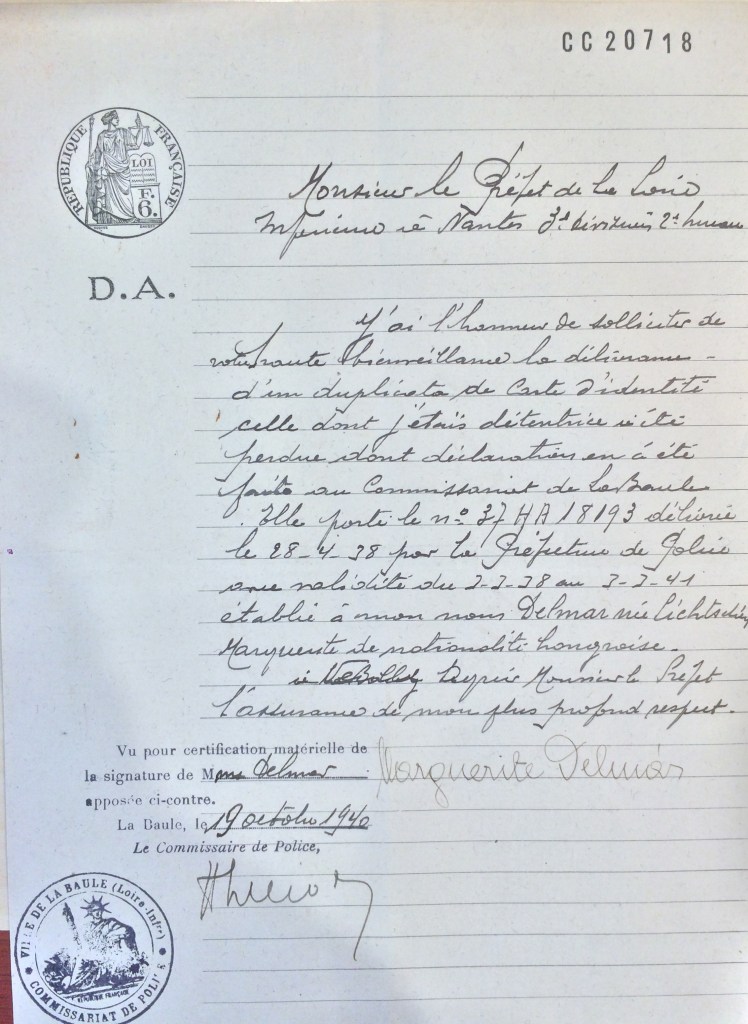 CC20718
RÉPUBLIQUE FRANÇAISE
LOI
F.
6.
D.A.
Monsieur le Préfet de la Loire
Inférieure à Nantes 3e division 2e bureau
J'ai l'honneur de solliciter de
votre haute bienveillance la délivrance
d'un duplicata de carte d'identité
celle dont j'étais détentrice a été
perdue dont déclaration en a été
faite au Commissariat de La Baule
. Elle porte le n° 37 HA 18193 délivrée
le 28-4-38 par la Préfecture de Police
avec validité du 3-3-38 au 3-3-41
établie à mon nom Delmar née
Marguerite de nationalité hongroise.
Monsieur le Préfet
l'assurance de mon plus profond respect.
Vu pour certification matérielle de
la signature de Mme Delmar
apposée ci-contre.
Marguerite Delmár
La Baule, le 19 octobre 1940
Le Commissaire de Police,
VILLE DE LA BAULE (Loire-Infre)
RÉPUBLIQUE FRANÇAISE
COMMISSARIAT DE POLICE